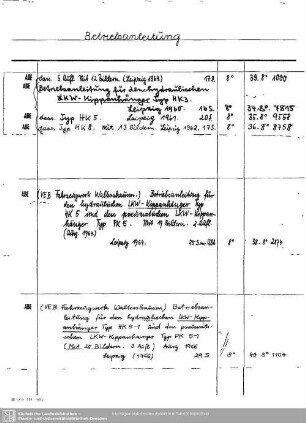 Betriebsanleitung
ABE dass. 5. Aufl. Mit 12 Bildern (Leipzig 1964) 17 S. 8° 39. 8° 1090
ABE Betriebsanleitung für den hydraulischen
ABE LKW-Kippanhänger Typ HK3.
Leipzig 1960. 16 S. 8° 34. 8° 7815
ABE dass. Typ HK 5. Leipzig 1961. 20 S. 8° 35. 8° 9558
ABE dass. Typ HK 8. Mit 13 Bildern. Leipzig 1962, 17 S. 8° 36. 8° 8758
ABE (VEB Fahrzeugwerk Waltershausen.) Betriebsanleitung für
den hydraulischen LKW-Kippanhänger Typ
HK 5 und den pneumatischen LKW-Kippan-
hänger Typ PK 5. Mit Bildern. 2. Aufl.
(Ausg. 1964)
Leipzig 1964. 8° 38. 8° 2174
ABE (VEB Fahrzeugwerk Waltershausen) Betriebsan-
leitung für den hydraulischen LKW-Kipp-
anhänger Typ HK 5-1 und den pneumati-
schen LKW-Kippanhänger Typ PK 5-1
(Mit 20 Bildern. 3. Aufl.) Ausg. 1966
Leipzig (1966) 29 S. 8° 40. 8° 1104